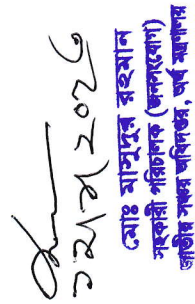 ১২/১/২০২৬
মোঃ মাসুদুর রহমান
সহকারী পরিচালক (জনসংযোগ)
জাতীয় সঞ্চয় অধিদপ্তর, অর্থ মন্ত্রণালয়